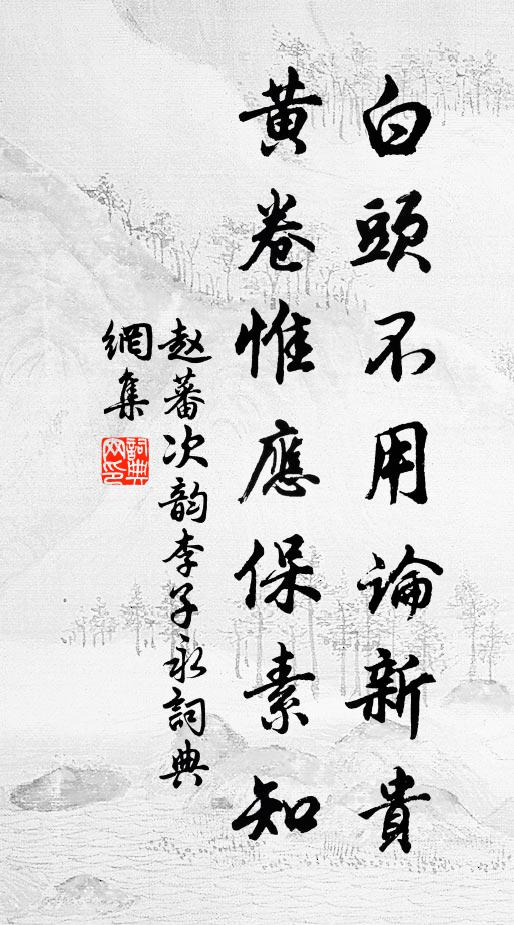 白頭不用論新貴
黄卷惟應保素知
赵蕃次韵李子永詞典
網集
詞典網印